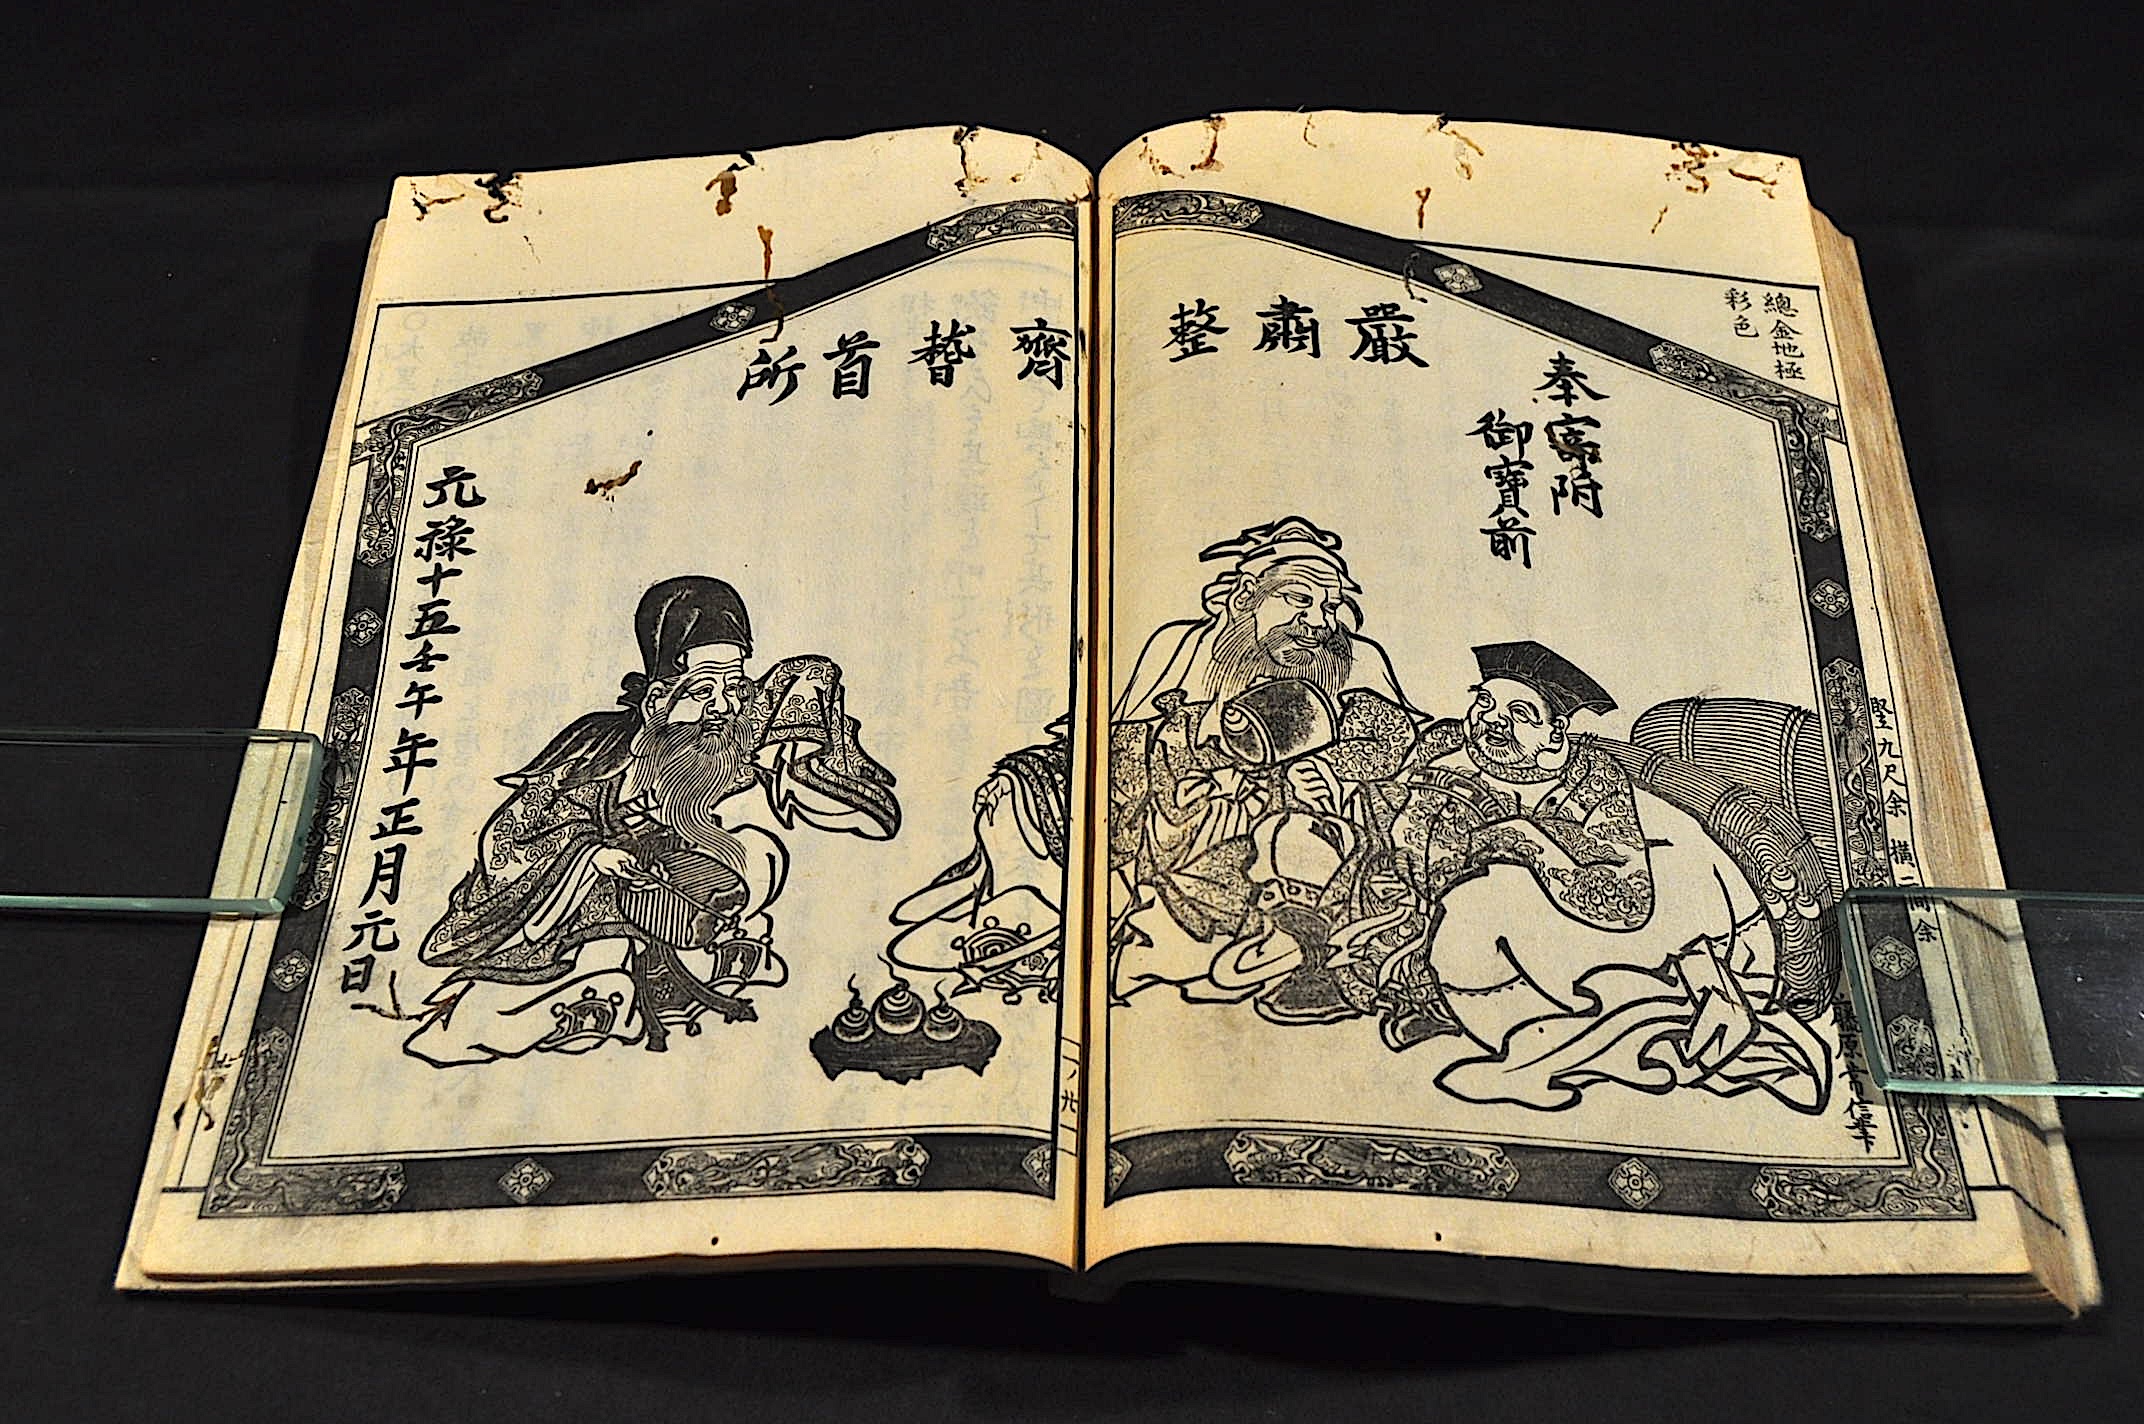 總金地極
彩色
奉寄附
御寶前
嚴肅整
齊稽首所
元祿十五壬午年正月元日
竪九尺余 橫二間余
藤原常信筆